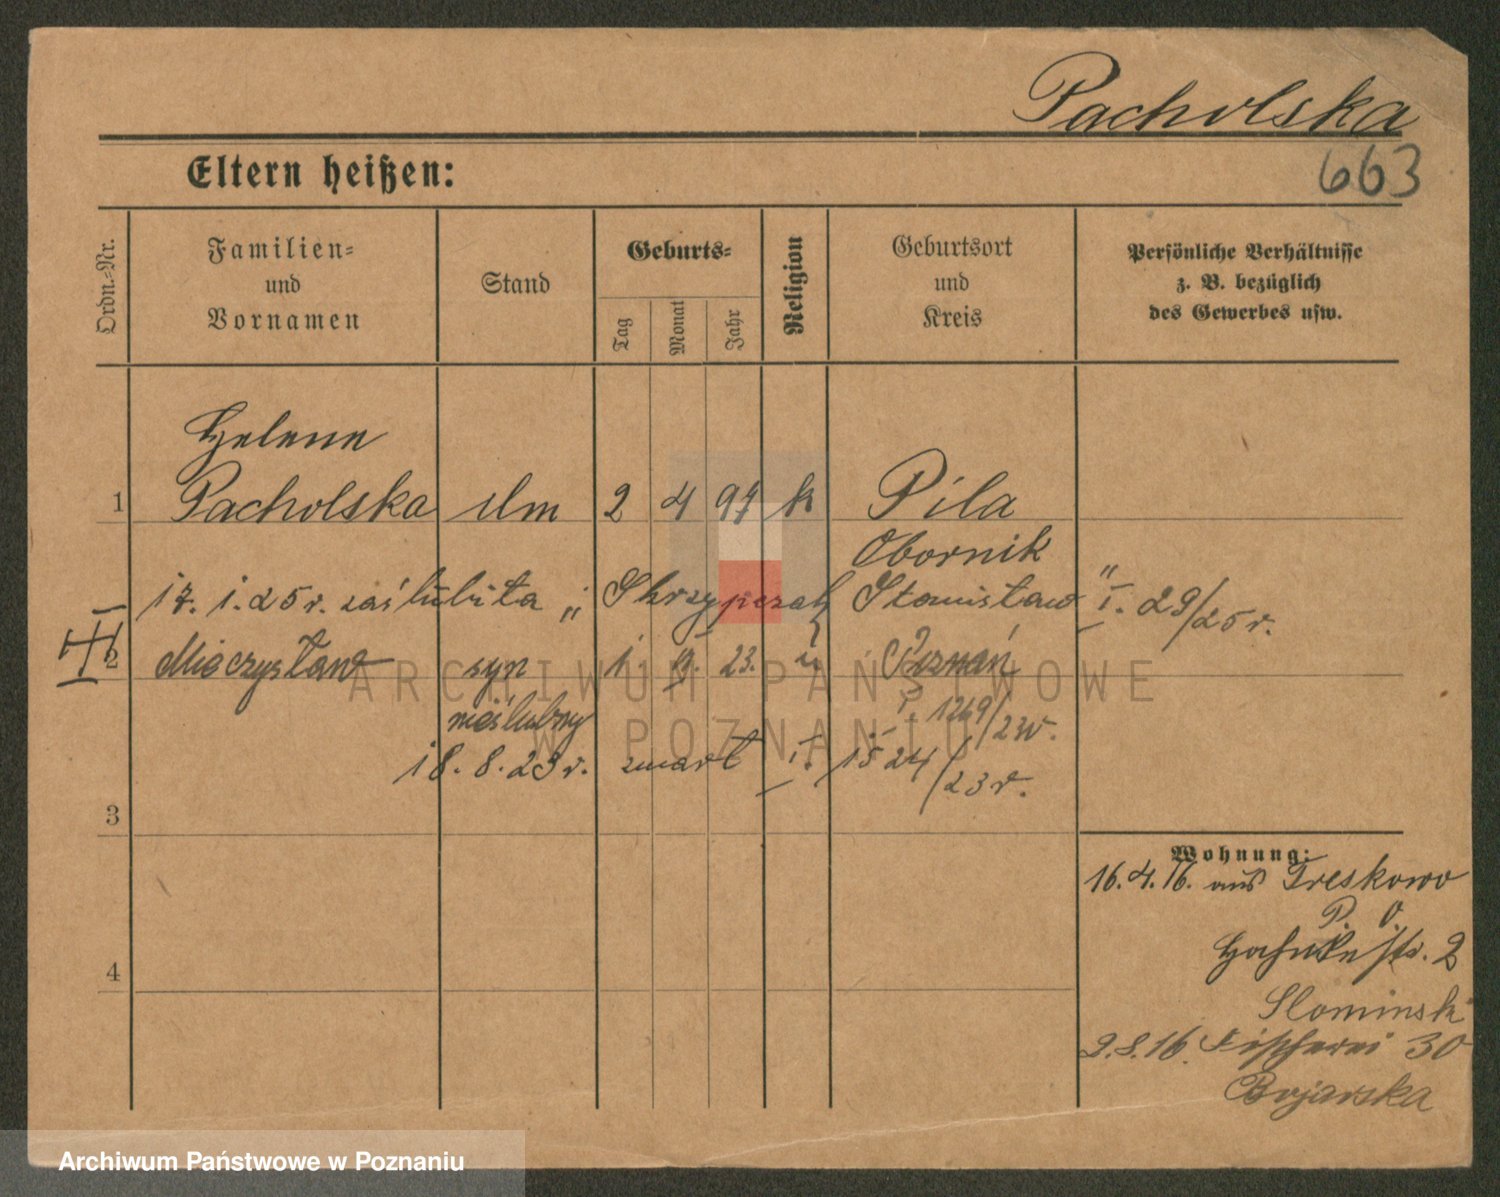 Pacholska
663
Eltern heißen:
Ordn.-Nr.
Familien-
und
Vornamen
Stand
Geburts-
Tag
Monat
Jahr
Religion
Geburtsort
und
Kreis
Persönliche Verhältnisse
z. B. bezüglich
des Gewerbes usw.
Helene
1 Pacholska 2 4 97 k Pila
Obornik
17. 1. 25 r. zaślubiła " Skrzypczak Stanisław " I. 29/25 r.
2 Mieczysław syn 1 23. Poznań
nieślubny I. 1269/23r.
18. 8. 23 r. zmarł I. 1524/23 r.
3
4
Wohnung:
16. 4. 16. aus Treskowo
P. O.
Hahnkestr. 2
Slominski
2.8.16. Fischerei 30
Bojarska
ARCHIWUM PAŃSTWOWE
W POZNANIU
Archiwum Państwowe w Poznaniu